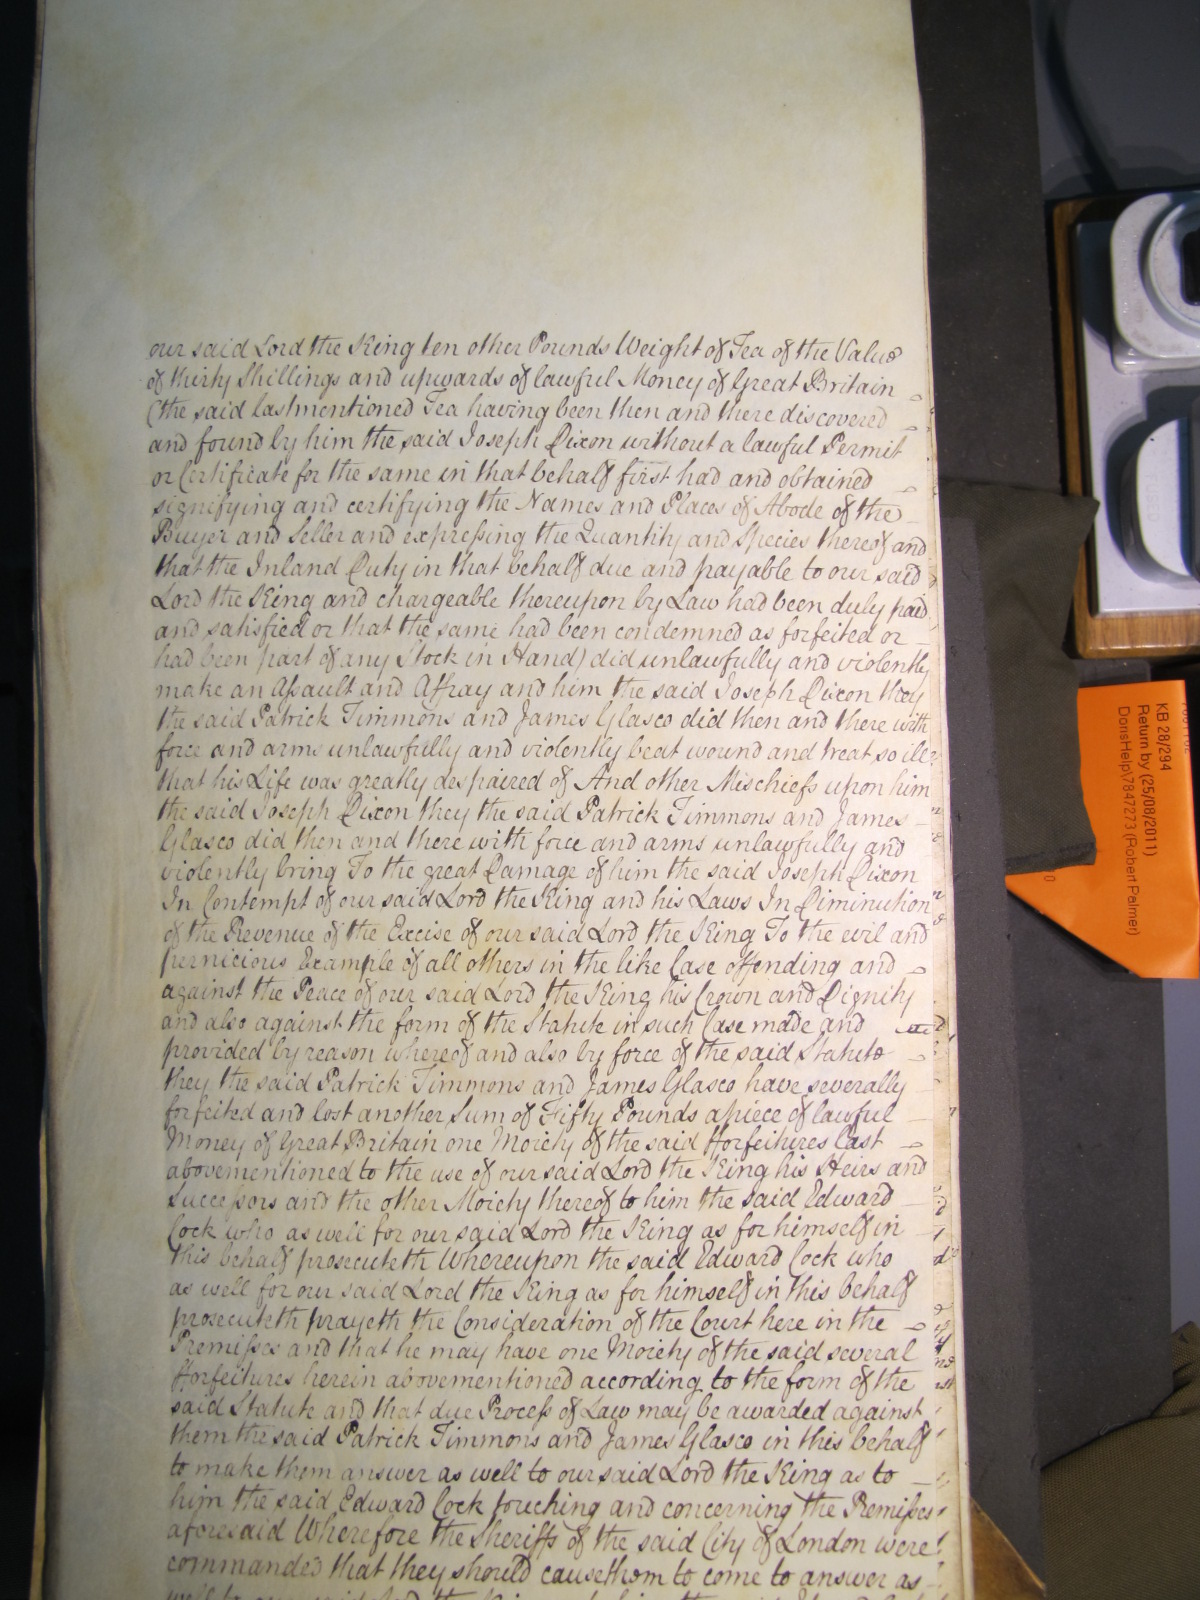 our said Lord the King ten other Pounds Weight of Tea of the Value
of thirty Shillings and upwards of lawful Money of Great Britain
(the said lastmentioned Tea having been then and there discovered
and found by him the said Joseph Dixon without a lawful Permit
or Certificate for the same in that behalf first had and obtained
signifying and certifying the Names and Places of Abode of the
Buyer and Seller and expressing the Quantity and Species thereof and
that the Inland Duty in that behalf due and payable to our said
Lord the King and chargeable thereupon by Law had been duly paid
and satisfied or that the same had been condemned as forfeited or
had been part of any Stock in Hand) did unlawfully and violently
make an Assault and Affray and him the said Joseph Dixon they
the said Patrick Timmons and James Glasco did then and there with
force and arms unlawfully and violently beat wound and treat so ill
that his Life was greatly despaired of And other Mischiefs upon him
the said Joseph Dixon they the said Patrick Timmons and James
Glasco did then and there with force and arms unlawfully and
violently bring To the great Damage of him the said Joseph Dixon
In Contempt of our said Lord the King and his Laws In Diminution
of the Revenue of the Excise of our said Lord the King To the evil and
pernicious Example of all others in the like Case offending and
against the Peace of our said Lord the King his Crown and Dignity
and also against the form of the Statute in such Case made and
provided by reason whereof and also by force of the said Statute
they the said Patrick Timmons and James Glasco have severally
forfeited and lost another Sum of Fifty Pounds apiece of lawful
Money of Great Britain one Moiety of the said fforfeitures last
abovementioned to the use of our said Lord the King his Heirs and
Successors and the other Moiety thereof to him the said Edward
Cock who as well for our said Lord the King as for himself in
this behalf prosecuteth Whereupon the said Edward Cock who
as well for our said Lord the King as for himself in this behalf
prosecuteth prayeth the Consideration of the Court here in the
Premisses and that he may have one Moiety of the said several
fforfeitures herein abovementioned according to the form of the
said Statute and that due Process of Law may be awarded against
them the said Patrick Timmons and James Glasco in this behalf
to make them answer as well to our said Lord the King as to
him the said Edward Cock touching and concerning the Premisses
aforesaid Wherefore the Sheriffs of the said City of London were
commanded that they should cause them to come to answer as
KB 28/294
Return by (25/08/2011)
DorisHelp\7847273 (Robert Palmer)